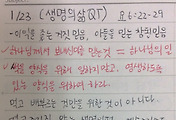 1/23 (생명의삶 QT) 요 6:22-29
- 이적을 좇는 거짓 믿음, 아들을 믿는 참된 믿음
✓ 하나님께서 보내신 이를 믿는 것 = 하나님의 일
✓ 썩을 양식을 위해 일하지 말고, 영생하도록
있는 양식을 위하여 하라.
먹고 배부르는 것만을 위한 것이 아니다.